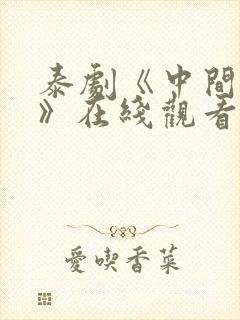 泰劇《中間
》在綫觀看
愛喫香菜